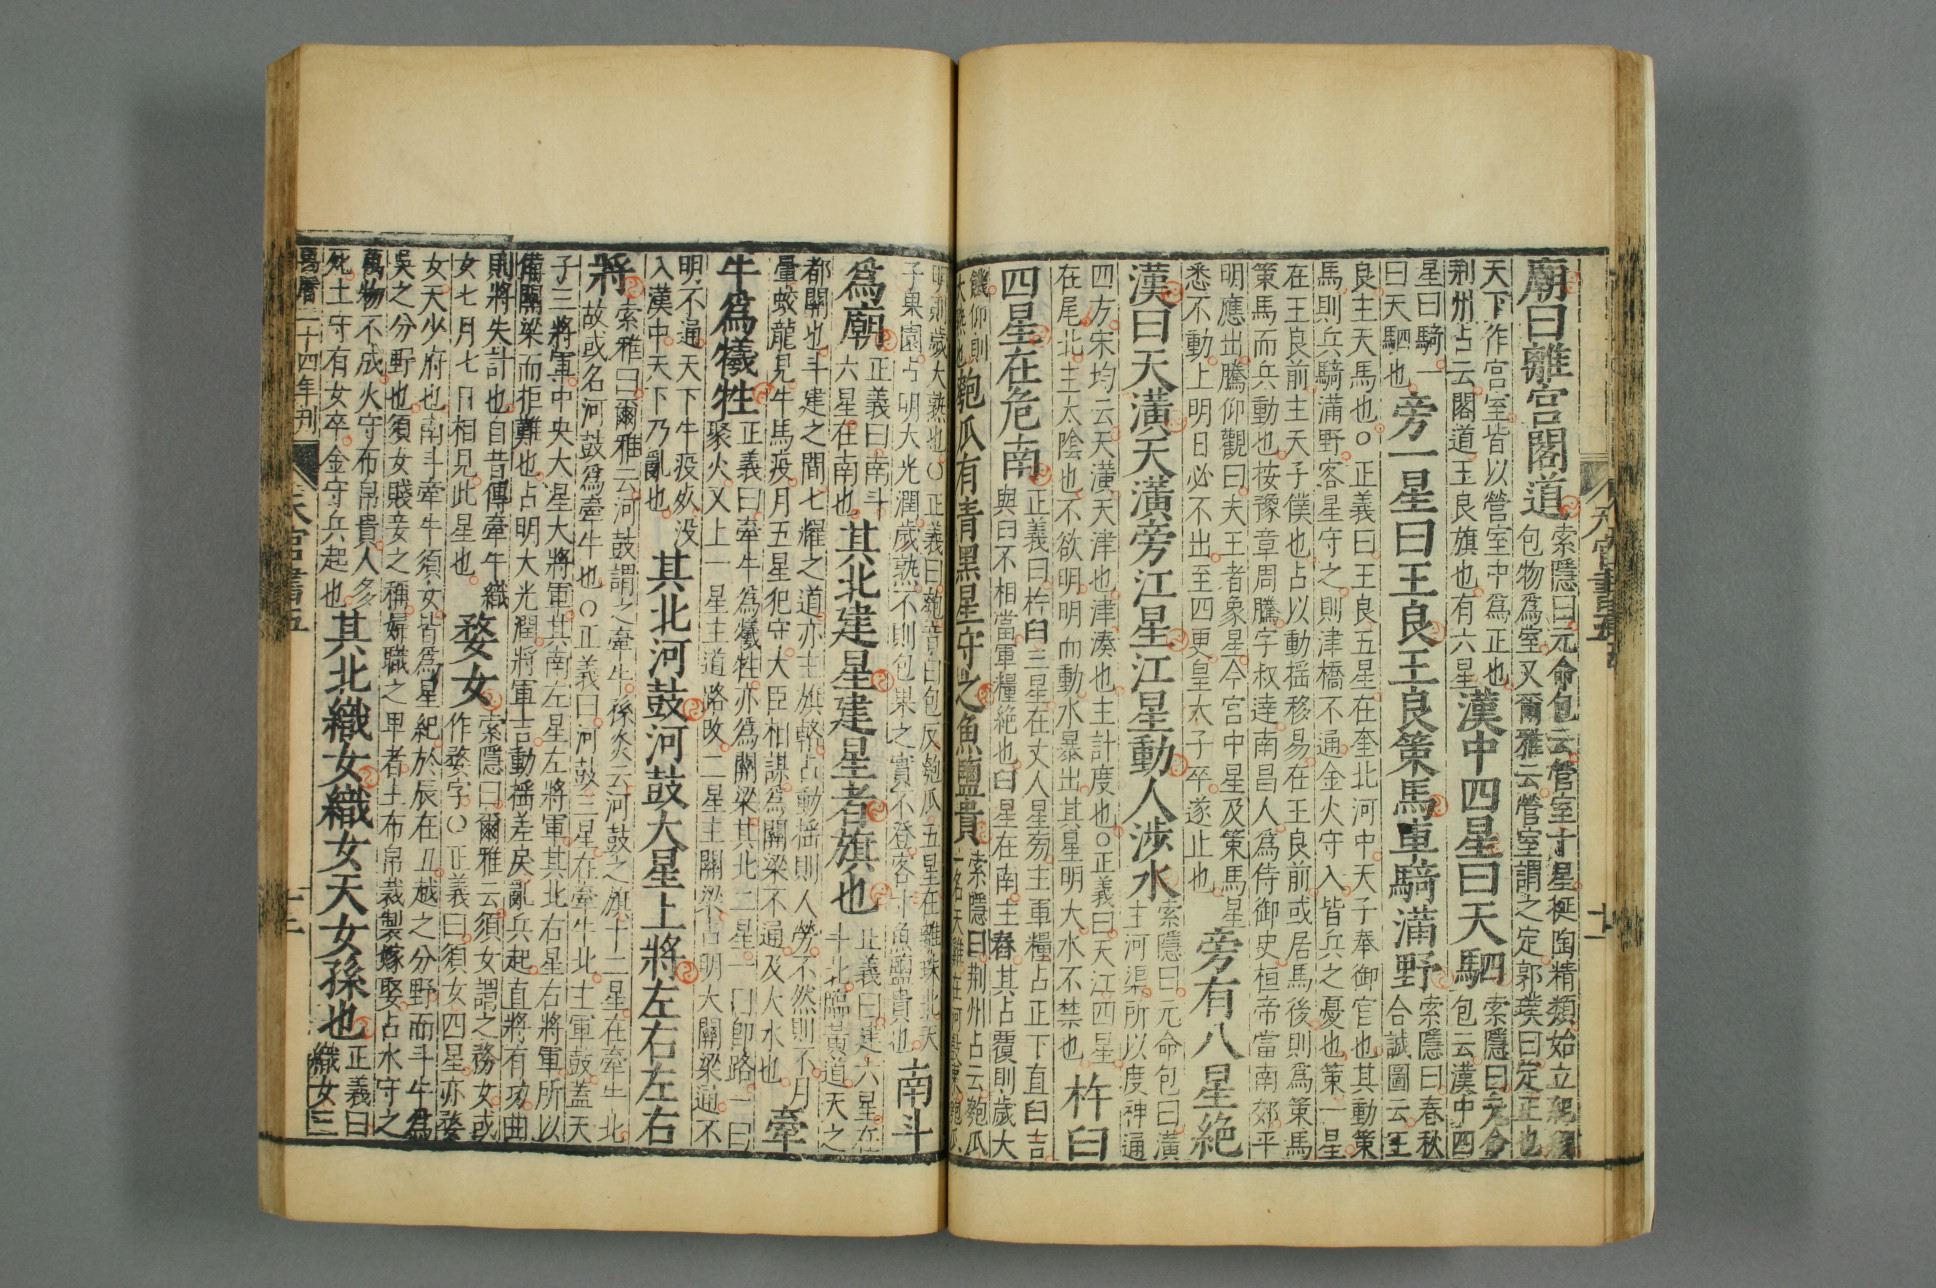 廟曰離宮閣道索隱曰元命包云營室十星埏陶精類始立紀綱
包物爲室又爾雅云營室謂之定郭璞曰定正也
天下作宮室皆以營室中爲正也
荆州占云閣道王良旗也有六星漢中四星曰天駟索隱曰元命
包云漢中四
星曰騎一
曰天駟也旁一星曰王良王良策馬車騎滿野索隱曰春秋
合誠圖云王
良主天馬也○正義曰王良五星在奎北河中天子奉御官也其動策
馬則兵騎滿野客星守之則津橋不通金火守入皆兵之憂也策一星
在王良前主天子僕也占以動摇移易在王良前或居馬後則爲策馬
策馬而兵動也按豫章周騰字叔達南昌人爲侍御史桓帝當南郊平
明應出騰仰觀曰夫王者象星今宮中星及策馬星
悉不動上明日必不出至四更皇太子卒遂止也旁有八星絶
漢曰天潢天潢旁江星江星動人涉水索隱曰元命包曰潢
主河渠所以度神通
四方宋均云天潢天津也津湊也主計度也○正義曰天江四星
在尾北主太陰也不欲明明而動水暴出其星明大水不禁也杵臼
四星在危南正義曰杵臼三星在丈人星旁主軍糧占正下直臼吉
與臼不相當軍糧絶也臼星在南主舂其占覆則歲大
饑仰則
大熟也匏瓜有青黑星守之魚鹽貴索隱曰荆州占云匏瓜
一名天雞在河鼓東匏瓜
明則歲大熟也○正義曰匏音白包反匏瓜五星在離珠北天
子果園占明大光潤歲熟不則包果之實不登客守魚鹽貴也南斗
爲廟正義曰南斗
六星在南也其北建星建星者旗也正義曰建六星在
斗北臨黃道天之
都關也斗建之間七耀之道亦主旗輅占動摇則人勞不然則不月
暈蛟龍見牛馬疫月五星犯守大臣相謀爲關梁不通及大水也牽
牛爲犧牲正義曰牽牛爲犧牲亦爲關梁其北二星一曰卽路一曰
聚火又上一星主道路次二星主關梁占明大關梁通不
明不通天下牛疫死没
入漢中天下乃亂也其北河鼓河鼓大星上將左右左右
將索隱曰爾雅云河鼓謂之牽牛孫炎云河鼓之旗十二星在牽牛北
故或名河鼓爲牽牛也○正義曰河鼓三星在牽牛北主軍鼓蓋天
子三將軍中央大星大將軍其南左星左將軍其北右星右將軍所以
備關梁而拒難也占明大光潤將軍吉動摇差戾亂兵起直將有功曲
則將失計也自昔傳牽牛織
女七月七日相見此星也婺女索隱曰爾雅云須女謂之務女或
作婺字○正義曰須女四星亦婺
女天少府也南斗牽牛須女皆爲星紀於辰在丑越之分野而斗牛爲
吳之分野也須女賤妾之稱婦職之卑者主布帛裁製嫁娶占水守之
萬物不成火守布帛貴人多
死土守有女卒金守兵起也其北織女織女天女孫也正義曰
織女三
萬曆二十四年刊
天官書五
十二